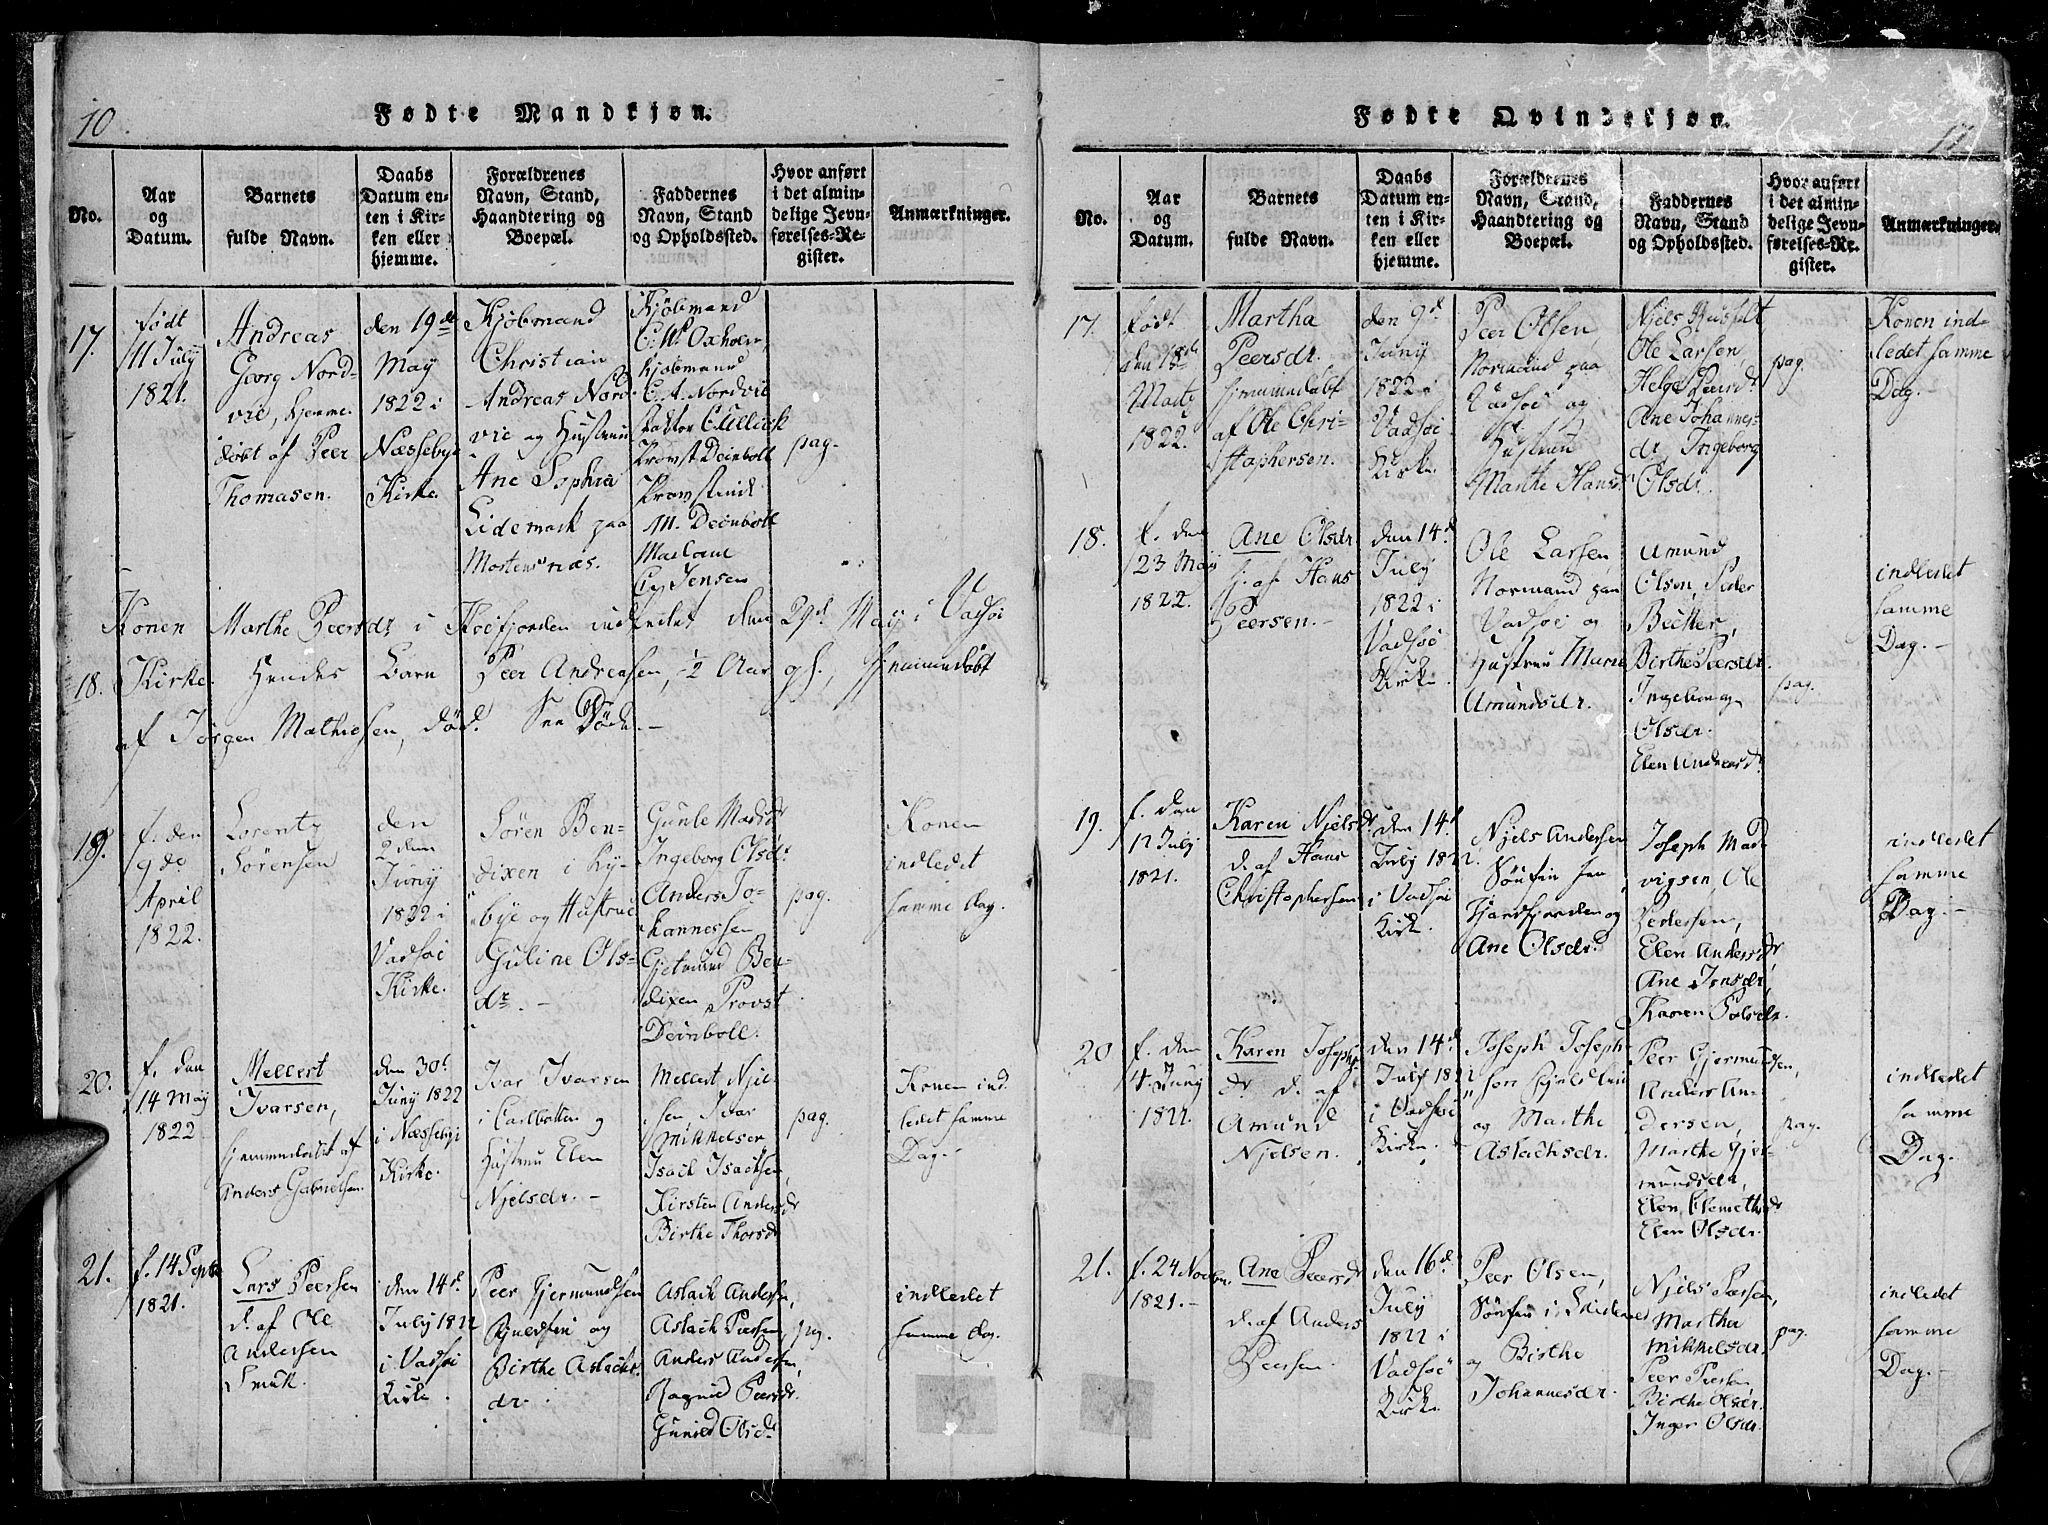 10.
Fødte Mandkjøn.
No.
Aar
og
Datum.
Barnets
fulde Navn.
Daabs
Datum en-
ten i Kir-
ken eller
hjemme.
Forældrenes
Navn, Stand,
Haandtering og
Boepæl.
Faddernes
Navn, Stand
og Opholdssted.
Hvor anført
i det almin-
delige Jevn-
førelses-Re-
gister.
Anmærkninger.
17.
født
11 July
1821.
Andreas
Georg Nord-
vie, hjemme
døbt af Peer
Thomasen.
den 19de
May
1822 i
Næssebye
Kirke.
Kjøbmand
Christian
Andreas Nord-
vie og Hustrue
Ane Sophia
Lidemark paa
Mortensnæs.
Kjøbmand
Oxholm,
Kjøbmand
C. A. Nordvie
Provst Deinboll
Provstinde
M. Deinboll
Madame
Jensen
pag.
18.
Konen Marthe Peersdr i indledet den 29d May i Vadsøe
Kirke. Hendes Barn Peer Andreasen, 1/2 Aar gl., hjemmedøbt
af Jørgen Mathiesen, død. See Døde.
19.
f. den
9de
April
1822.
Lorentz
Sørensen
den
2den
Juny
1822 i
Vadsøe
Kirke.
Søren Ben-
dixen i Ky-
bye og Hustrue
Guline Ols-
dr.
Ingeborg Olsdr
Anders Jo-
hannessen
Ben-
dixen Provst
Deinboll.
pag.
Konen
indledet
samme dag.
20.
f. den
14 May
1822
Mellert
Ivarsen,
hjemmedøbt af
Anders Gabrielsen.
den 30t
Juny 1822
i Næssebye
Kirke.
Ivar Ivarsen
i Carlbotten og
Hustrue Elen
Njelsdr.
Mellert Njel-
sen, Ivar
Mikkelsen
Isach Isachsen,
Kirsten Andersdr
Birthe Thorsdr
pag.
Konen ind-
ledet samme
Dag.
21.
f. 14 Septbr
1821.
Lars Peersen
d. af Ole
Andersen
Smuk.
den 14d
July 1822
i Vadsøe
Kirke.
Peer Gjermundsen
og
Birthe Aslachs-
dr.
Aslach Andersen,
Aslach Peersen,
Anders Andersen,
Ragnild Peersdr.
Gunild Olsdr
pag.
indledet
samme dag.
Fødte Qvindekjøn.
No.
Aar
og
Datum.
Barnets
fulde Navn.
Daabs
Datum en-
ten i Kir-
ken eller
hjemme.
Forældrenes
Navn, Stand,
Haandtering og
Boepæl.
Faddernes
Navn, Stand
og Opholdssted.
Hvor anført
i det almin-
delige Jevn-
førelses-Re-
gister.
Anmærkninger.
17.
født
den 18de
Martz
1822.
Martha
Peersdr.
hjemmedøbt
af Ole Chri-
stophersen.
den 9d
Juny
1822 i
Vadsøe
Kirke.
Peer Olsen,
Normand paa
Vadsøe og
Hustrue
Marthe Hansdr
Njels
Ole Larsen,
Helge Peersdr
Ane Johannes-
dr, Ingeborg
Olsdr.
pag.
Konen ind-
ledet samme
Dag.
18.
f. den
23 May
1822.
Ane Olsdr
h. af Hans
Peersen.
den 14d
July
1822 i
Vadsøe
Kirke.
Ole Larsen,
Normand paa
Vadsøe og
Hustrue Marie
Amundsdr.
Amund
Olsen, Peder
Birthe Peersdr.
Ingeborg
Olsdr.
Elen Andreasdr
pag.
indledet
samme
Dag.
19.
f. den
12 July
1821.
Karen Njelsdr
d. af Hans
Christophersen
den 14d
July 1822
i Vadsøe
Kirke.
Njels Andersen
Søefin fra
og
Ane Olsdr.
Joseph Mad-
vigsen, Ole
Pedersen,
Elen Andersdr
Ane Jensdr,
Karen Polsdr.
indledet
samme
Dag.
20
f. den
4. Juny
1822.
Karen Josephs
dr. d. af
Amund
Njelsen.
den 14d
July 1822
i Vadsøe
Kirke.
Joseph Joseph-
sen
og Marthe
Aslachsdr.
Peer Gjermundsen,
Anders An-
dersen,
Marthe Gjer-
mundsdr,
Elen Clemethsdr
Elen Olsdr.
pag.
indledet
samme
Dag.
21.
f. 24 Novbr.
1821.
Ane Peersdr
d. af Anders
Peersen.
den 16d
July
1822 i
Vadsøe
Kirke.
Peer Olsen,
Søefin i
og Birthe
Johannesdr.
Njels Larsen,
Martha
Mikkelsdr.
Peer Peersen
Birthe Olsdr.
Inger Olsdr.
pag.
indledet
samme
Dag.